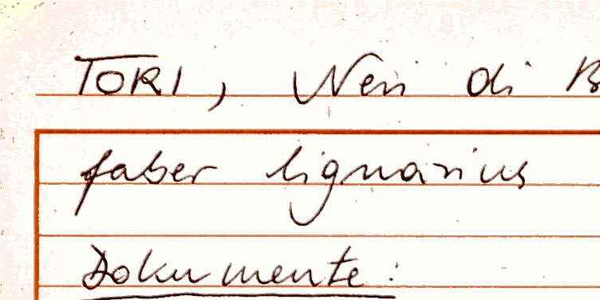 TORI, Neri di
faber lignarius
Dokumente: